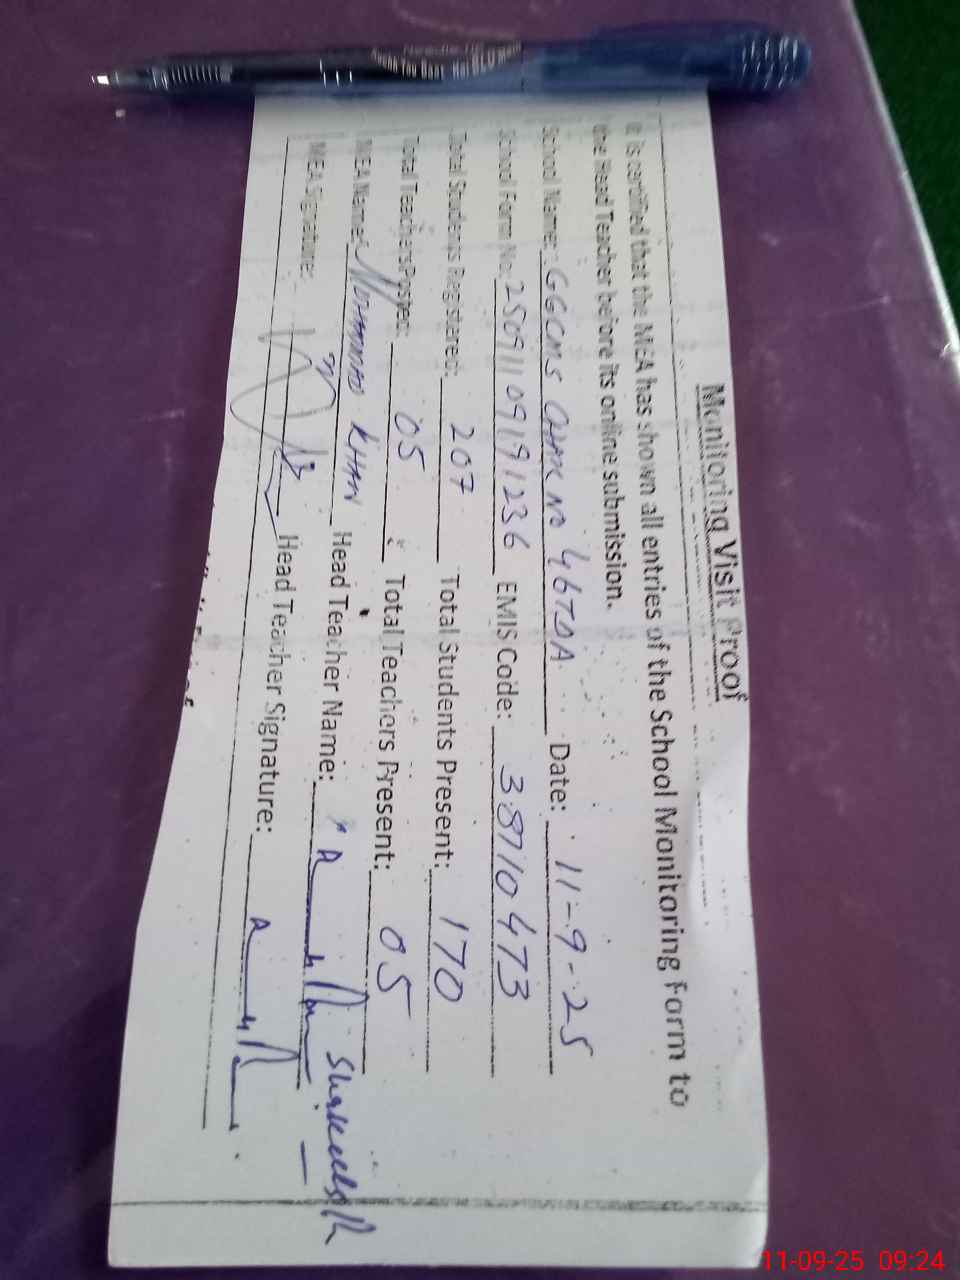 Monitoring Visit Proof
It is certified that the MEA has shown all entries of the School Monitoring Form to
the Head Teacher before its online submission.
School Name: GGCMS CHAK NO 46TDA Date: 11-9-25
School Form No: 25091109191236 EMIS Code: 38710473
Total Students Registered: 207 Total Students Present: 170
Total Teachers Posted: 05 Total Teachers Present: 05
MEA Name: MOHAMMAD KHAN Head Teacher Name:
MEA Signature: Head Teacher Signature:
11-09-25 09:24